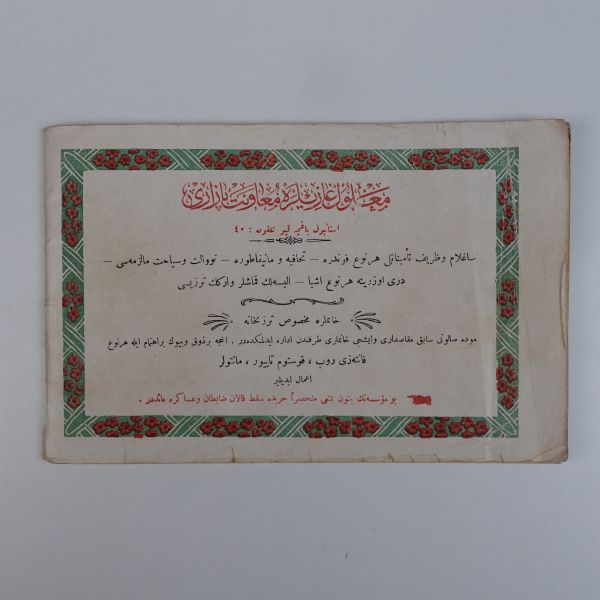 معلول غازیلره معاونت پازاری
استانبول باغچه قپو تلفون : ٤٠
ساغلام وظریف تأمیناتلی هرنوع قوندره — تحافیه و مانیفاطوره — تووالت وسیاحت مالزمه‌سی —
دری اوزرینه هرنوع اشیا — البسه‌لك قماشلر وارکك ترزیسی
خانملره مخصوص ترزیخانه
موده صالونی سابق مقاصداری وایشجی خانملری طرفندن اداره ایدلمکده‌در . انجه برذوق وبیوك براهتمام ایله هرنوع
فانته‌زی روب ، قوستوم تاییور ، مانتولر
اعمال ایدیلیر
بو مؤسسه‌نك بتون تمتعی منحصراً حربده سقط قالان ضابطان وعساکره عائددر .